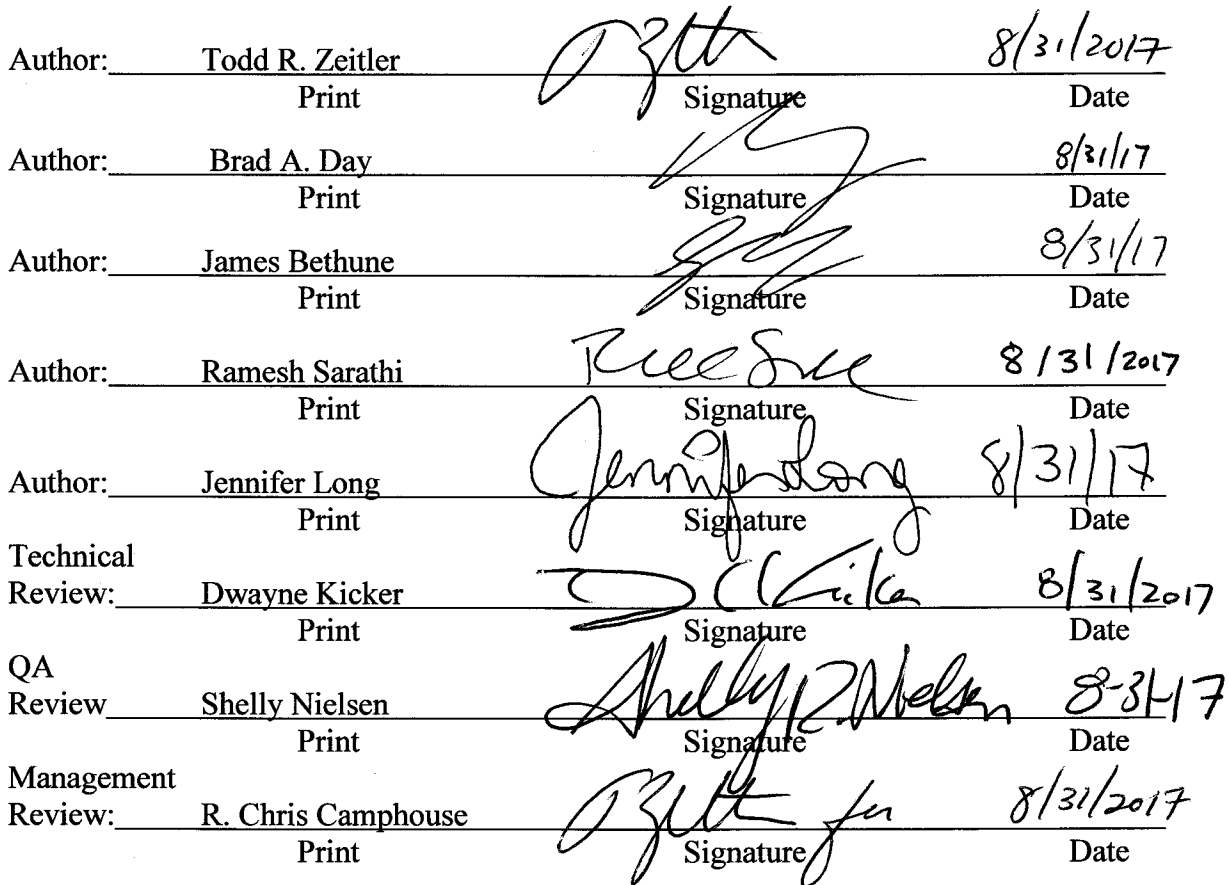 Author: Todd R. Zeitler 8/31/2017
Print Signature Date
Author: Brad A. Day 8/31/17
Print Signature Date
Author: James Bethune 8/31/17
Print Signature Date
Author: Ramesh Sarathi 8/31/2017
Print Signature Date
Author: Jennifer Long Jennifer Long 8/31/17
Print Signature Date
Technical
Review: Dwayne Kicker D C Kicker 8/31/2017
Print Signature Date
QA
Review Shelly Nielsen Shelly R. Nielsen 8-31-17
Print Signature Date
Management
Review: R. Chris Camphouse for 8/31/2017
Print Signature Date